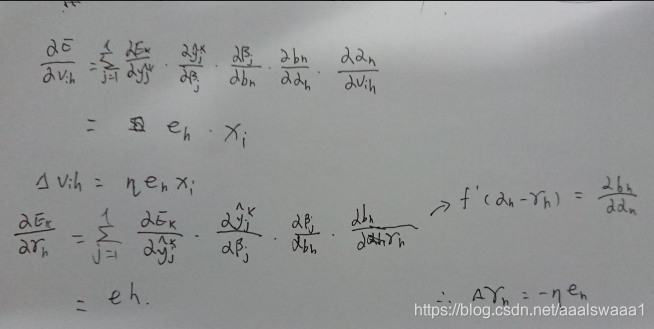 ∂E/∂vih = Σ_{j=1}^{l} ∂Ek/∂ŷj^k · ∂ŷj^k/∂βj · ∂βj/∂bh · ∂bh/∂αh · ∂αh/∂vih
= eh · xi
Δvih = ηehxi
∂Ek/∂γh = Σ_{j=1}^{l} ∂Ek/∂ŷj^k · ∂ŷj^k/∂βj · ∂βj/∂bh · ∂bh/∂γh → f'(αh-γh) = ∂bh/∂αh
= eh.
∴ Δγh = -ηeh
https://blog.csdn.net/aaalswaaa1